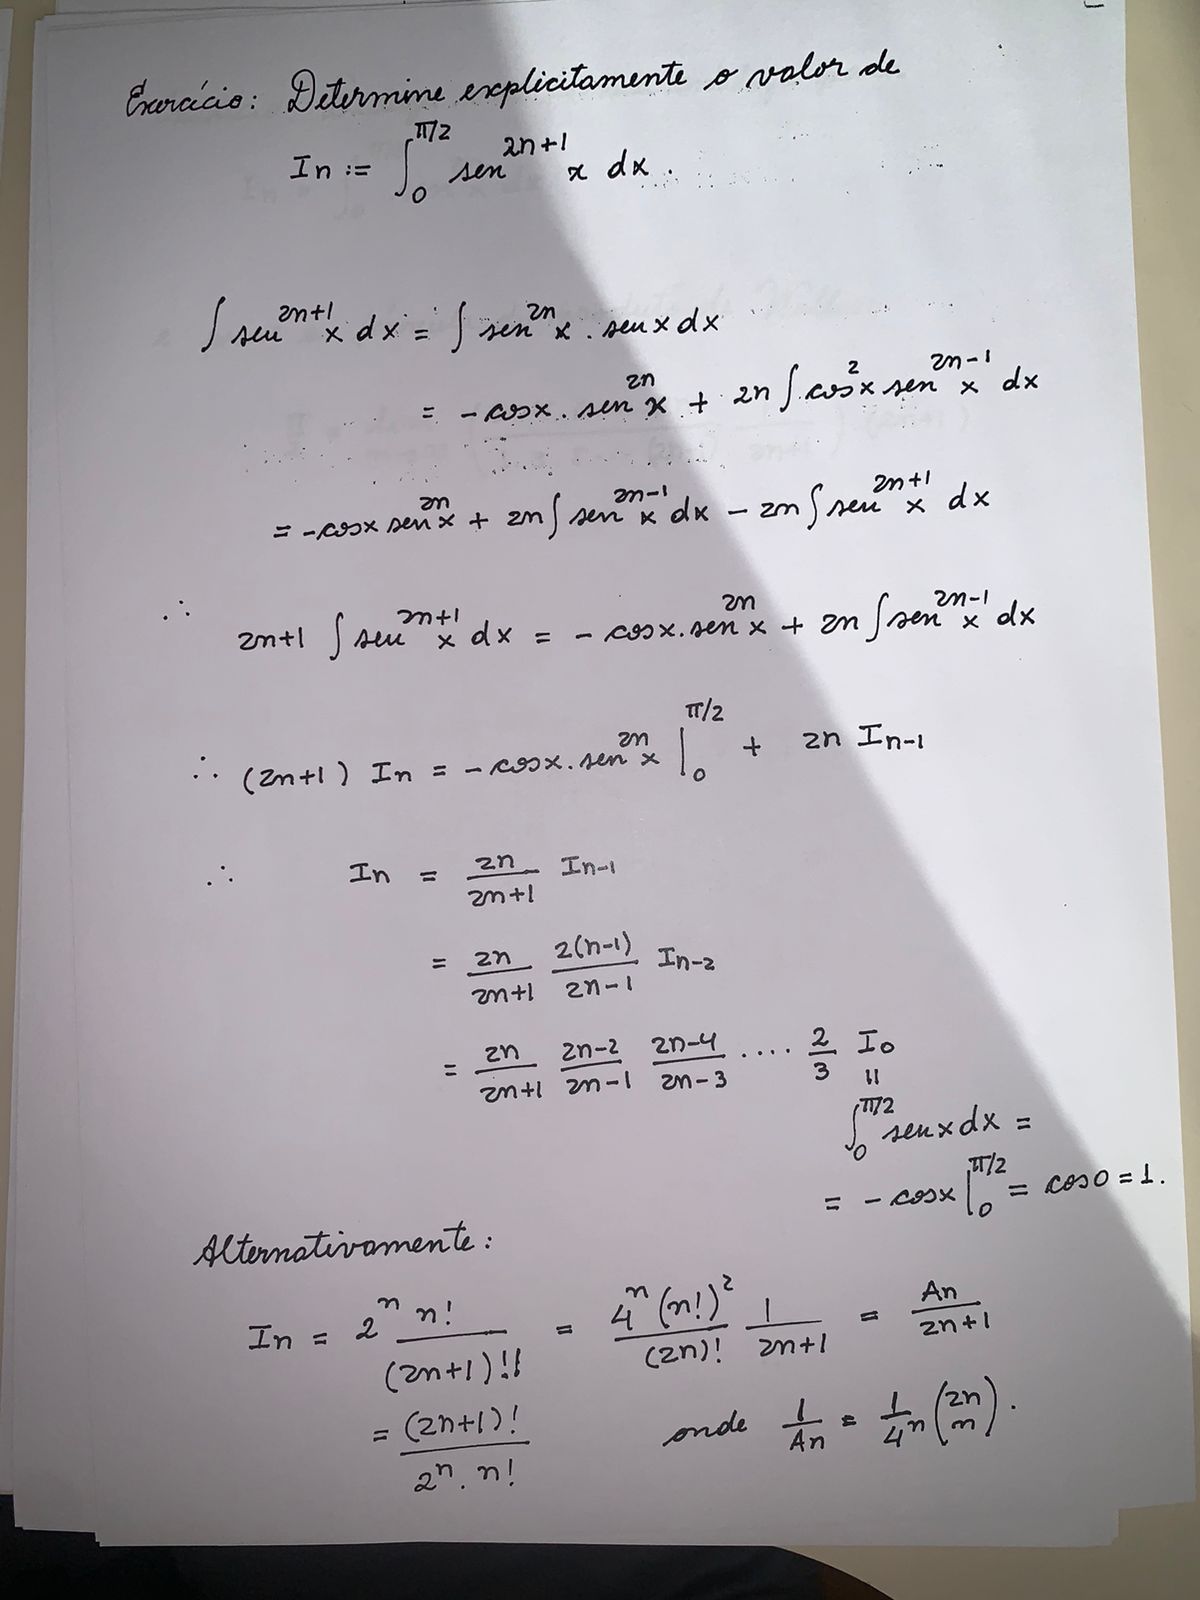 Exercício: Determine explicitamente o valor de
In := ∫₀^{π/2} sen^{2n+1} x dx.
∫ sen^{2n+1} x dx = ∫ sen^{2n} x . sen x dx
= - cos x . sen^{2n} x + 2n ∫ cos² x sen^{2n-1} x dx
= - cos x sen^{2n} x + 2n ∫ sen^{2n-1} x dx - 2n ∫ sen^{2n+1} x dx
∴ 2n+1 ∫ sen^{2n+1} x dx = - cos x . sen^{2n} x + 2n ∫ sen^{2n-1} x dx
∴ (2n+1) In = - cos x . sen^{2n} x |₀^{π/2} + 2n I_{n-1}
∴ In = \frac{2n}{2n+1} I_{n-1}
= \frac{2n}{2n+1} \frac{2(n-1)}{2n-1} I_{n-2}
= \frac{2n}{2n+1} \frac{2n-2}{2n-1} \frac{2n-4}{2n-3} .... \frac{2}{3} I₀
=
∫₀^{π/2} sen x dx =
= - cos x |₀^{π/2} = cos 0 = 1.
Alternativamente:
In = 2^n \frac{n!}{(2n+1)!!} = \frac{4^n (n!)²}{(2n)!} \frac{1}{2n+1} = \frac{An}{2n+1}
= \frac{(2n+1)!}{2^n . n!} onde \frac{1}{An} = \frac{1}{4^n} \binom{2n}{n}.